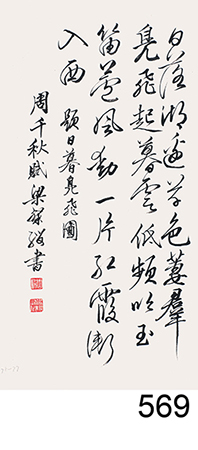 日落湖邊草色萋群
鳧飛起暮雲低頻吹玉
笛蘆風動一片紅霞漸
入西 題日暮鳧飛圖
周千秋賦梁粲纓書
569